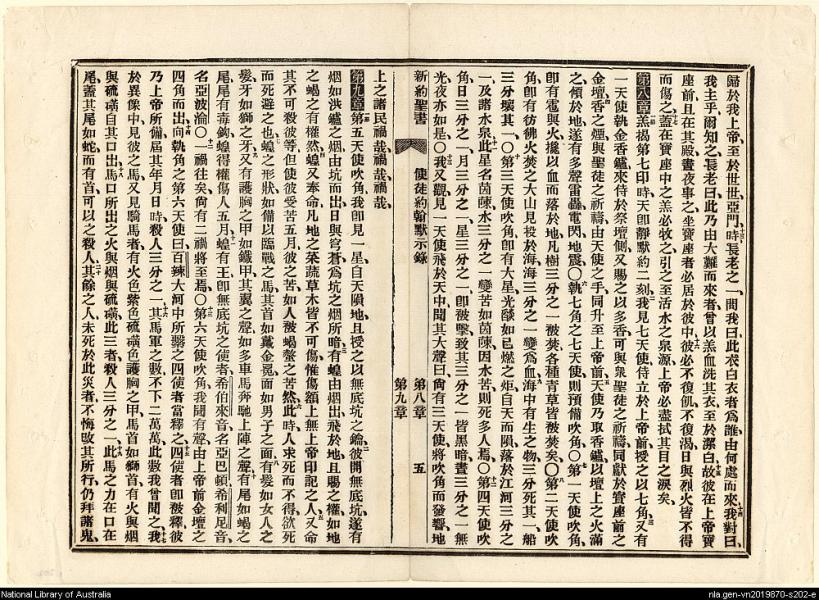 歸於我上帝、至於世世、亞門、時長老之一問我曰、此衣白衣者爲誰、由何處而來、我對曰、
我主乎、爾知之、長老曰、此乃由大難而來者、曾以羔血洗其衣、至於潔白、故彼在上帝寶
座前、且在其殿、晝夜事之、坐寶座者必居於彼中、彼必不復飢、不復渴、日與烈火皆不得
而傷之、蓋在寶座中之羔必牧之、引之至活水之泉源、上帝必盡拭其目之淚矣、
第八章 羔揭第七印時、天卽靜默約二刻、我見七天使侍立於上帝前、授之以七角、又有
一天使執金香鑪、來侍於祭壇側、又賜之以多香、可與衆聖徒之祈禱、同獻於寶座前之
金壇、香之煙與聖徒之祈禱、由天使之手、同升至上帝前、天使乃取香鑪、以壇上之火滿
之、傾於地、遂有多聲雷轟電閃地震、〇執七角之七天使則預備吹角、〇第一天使吹角、
卽有雹與火攙以血而落於地、凡樹三分之一被焚、各種青草皆被焚矣、〇第二天使吹
角、卽有彷彿火焚之大山見投於海、海三分之一變爲血、海中有生之物三分死其一、船
三分壞其一、〇第三天使吹角、卽有大星光燄如已燃之炬、自天而隕、落於江河三分之
一、及諸水泉、此星名茵蔯、水三分之一變苦如茵蔯、因水苦則死多人焉、〇第四天使吹
角、日三分之一、月三分之一、星三分之一、卽被擊、致其三分之一皆黑暗、晝三分之一無
光、夜亦如是、〇我又觀、見一天使飛於天中、聞其大聲曰、尙有三天使將吹角而發聲、地
新約聖書 使徒約翰默示錄 第八章 第九章 五
上之諸民、禍哉、禍哉、禍哉、
第九章 第五天使吹角、我卽見一星自天隕地、且授之以無底坑之鑰、彼開無底坑、遂有
煙如洪鑪之煙、由坑而出、日與穹蒼爲坑之煙所暗、有蝗由煙出、飛於地、且賜之權、如地
之蝎之有權然、蝗又奉命、凡地之菜蔬草木皆不可傷、惟傷額上無上帝印記之人、又命
其不可殺彼等、但使彼受苦五月、彼之苦、如人被蝎螫之苦然、此時人求死而不得、欲死
而死避之也、蝗之形狀、如備以臨戰之馬、其首如戴金冕、面如男子之面、有髮如女人之
髮、牙如獅子之牙、又有護胸之甲如鐵甲、其翼之聲、如多車馬奔馳上陣之聲、有尾如蝎之
尾、尾有毒鉤、蝗得權傷人五月、蝗有王、卽無底坑之使者、希伯來音名亞巴頓、希利尼音、
名亞波淪、〇一禍往矣、尙有二禍將至焉、〇第六天使吹角、我聞有聲由上帝前金壇之
四角而出、向執角之第六天使曰、百辣大河中所繫之四使者、當釋之、四使者卽被釋、彼
乃上帝所備、屆其年月日時、殺人三分之一、其馬軍之數不下二萬萬、此數我曾聞之、我
於異像中見彼之馬、又見騎馬者、有火色紫色硫磺色護胸之甲、馬首如獅首、有火與煙
與硫磺自其口出、馬口所出之火與煙與硫磺、此三者殺人三分之一、此馬之力、在口在
尾、蓋其尾如蛇而有首、可以之殺人、其餘之人、未死於此災者、不悔改其所行、仍拜諸鬼、
National Library of Australia
nla.gen-vn2019870-s202-e